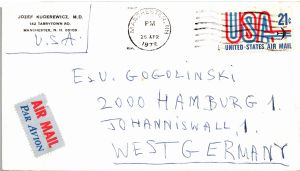 JOZEF KUGEREWICZ, M.D.
142 TARRYTOWN RD.
MANCHESTER, N. H. 03103
U.S.A.
PM
25 APR
1972
USA 21¢
UNITED STATES AIR MAIL
E. V. GOGOLINSKI
2000 HAMBURG 1.
JOHANNISWALL, 1.
WEST GERMANY
AIR MAIL
PAR AVION